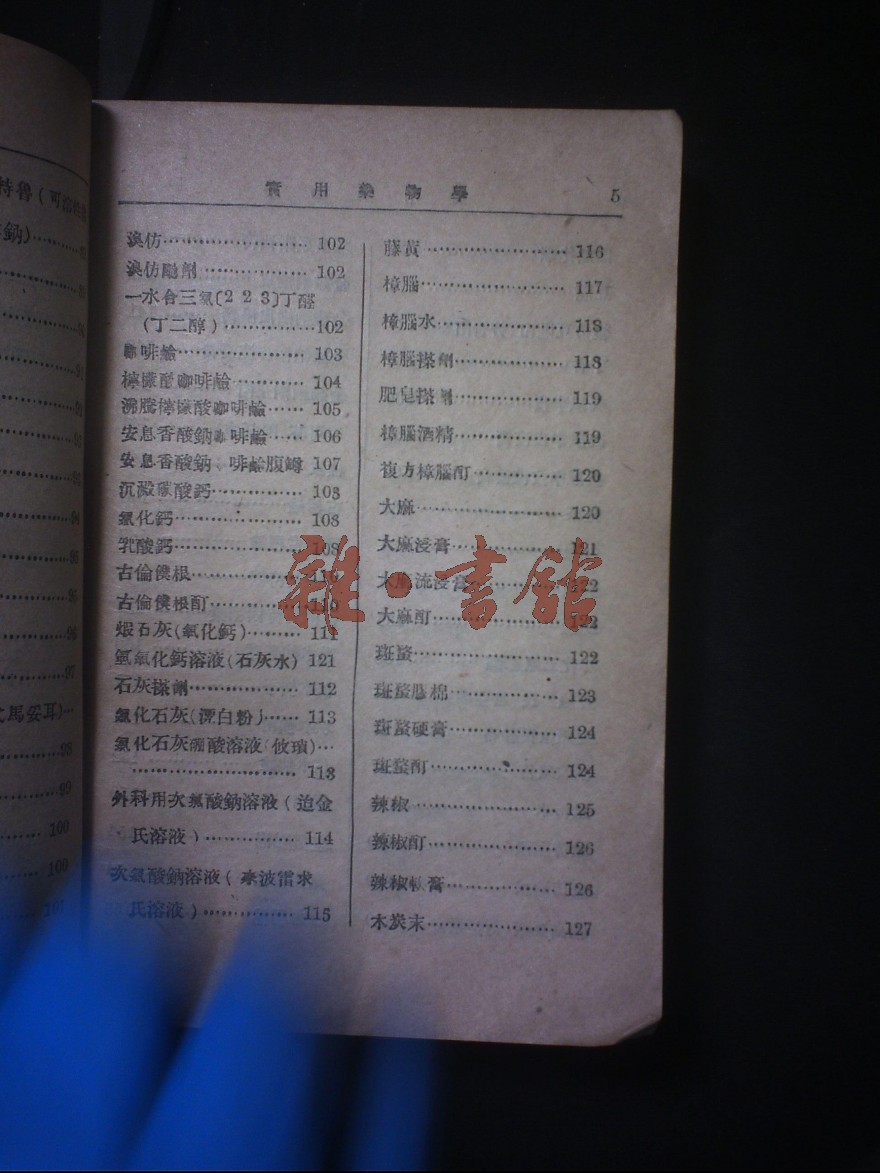 實用藥物學 5
溴仿 102
溴仿颮劑 102
一水合三氯〔2 2 3〕丁醛
(丁二醇) 102
咖啡鹼 103
檸檬酸咖啡鹼 104
沸騰檸檬酸咖啡鹼 105
安息香酸鈉咖啡鹼 106
安息香酸鈉 啡鹼腹罇 107
沉澱碳酸鈣 108
氯化鈣 108
乳酸鈣 108
古倫僕根
古倫僕根酊
煆石灰(氧化鈣) 111
氫氧化鈣溶液(石灰水) 121
石灰搽劑 112
氯化石灰(漂白粉) 113
氯化石灰硼酸溶液(攸瑣)
113
外科用次氯酸鈉溶液(迨金
氏溶液) 114
次氯酸鈉溶液( 波雷求
氏溶液) 115
藤黃 116
樟腦 117
樟腦水 118
樟腦搽劑 118
肥皂搽劑 119
樟腦酒精 119
複方樟腦酊 120
大麻 120
大麻浸膏 121
大麻流浸膏 122
大麻酊 122
斑蝥 122
斑蝥膠棉 123
斑蝥硬膏 124
斑蝥酊 124
辣椒 125
辣椒酊 126
辣椒軟膏 126
木炭末 127
雜·書館
特魯(可溶
鈉)
94
95
95
96
97
馬妥耳)
98
99
100
100